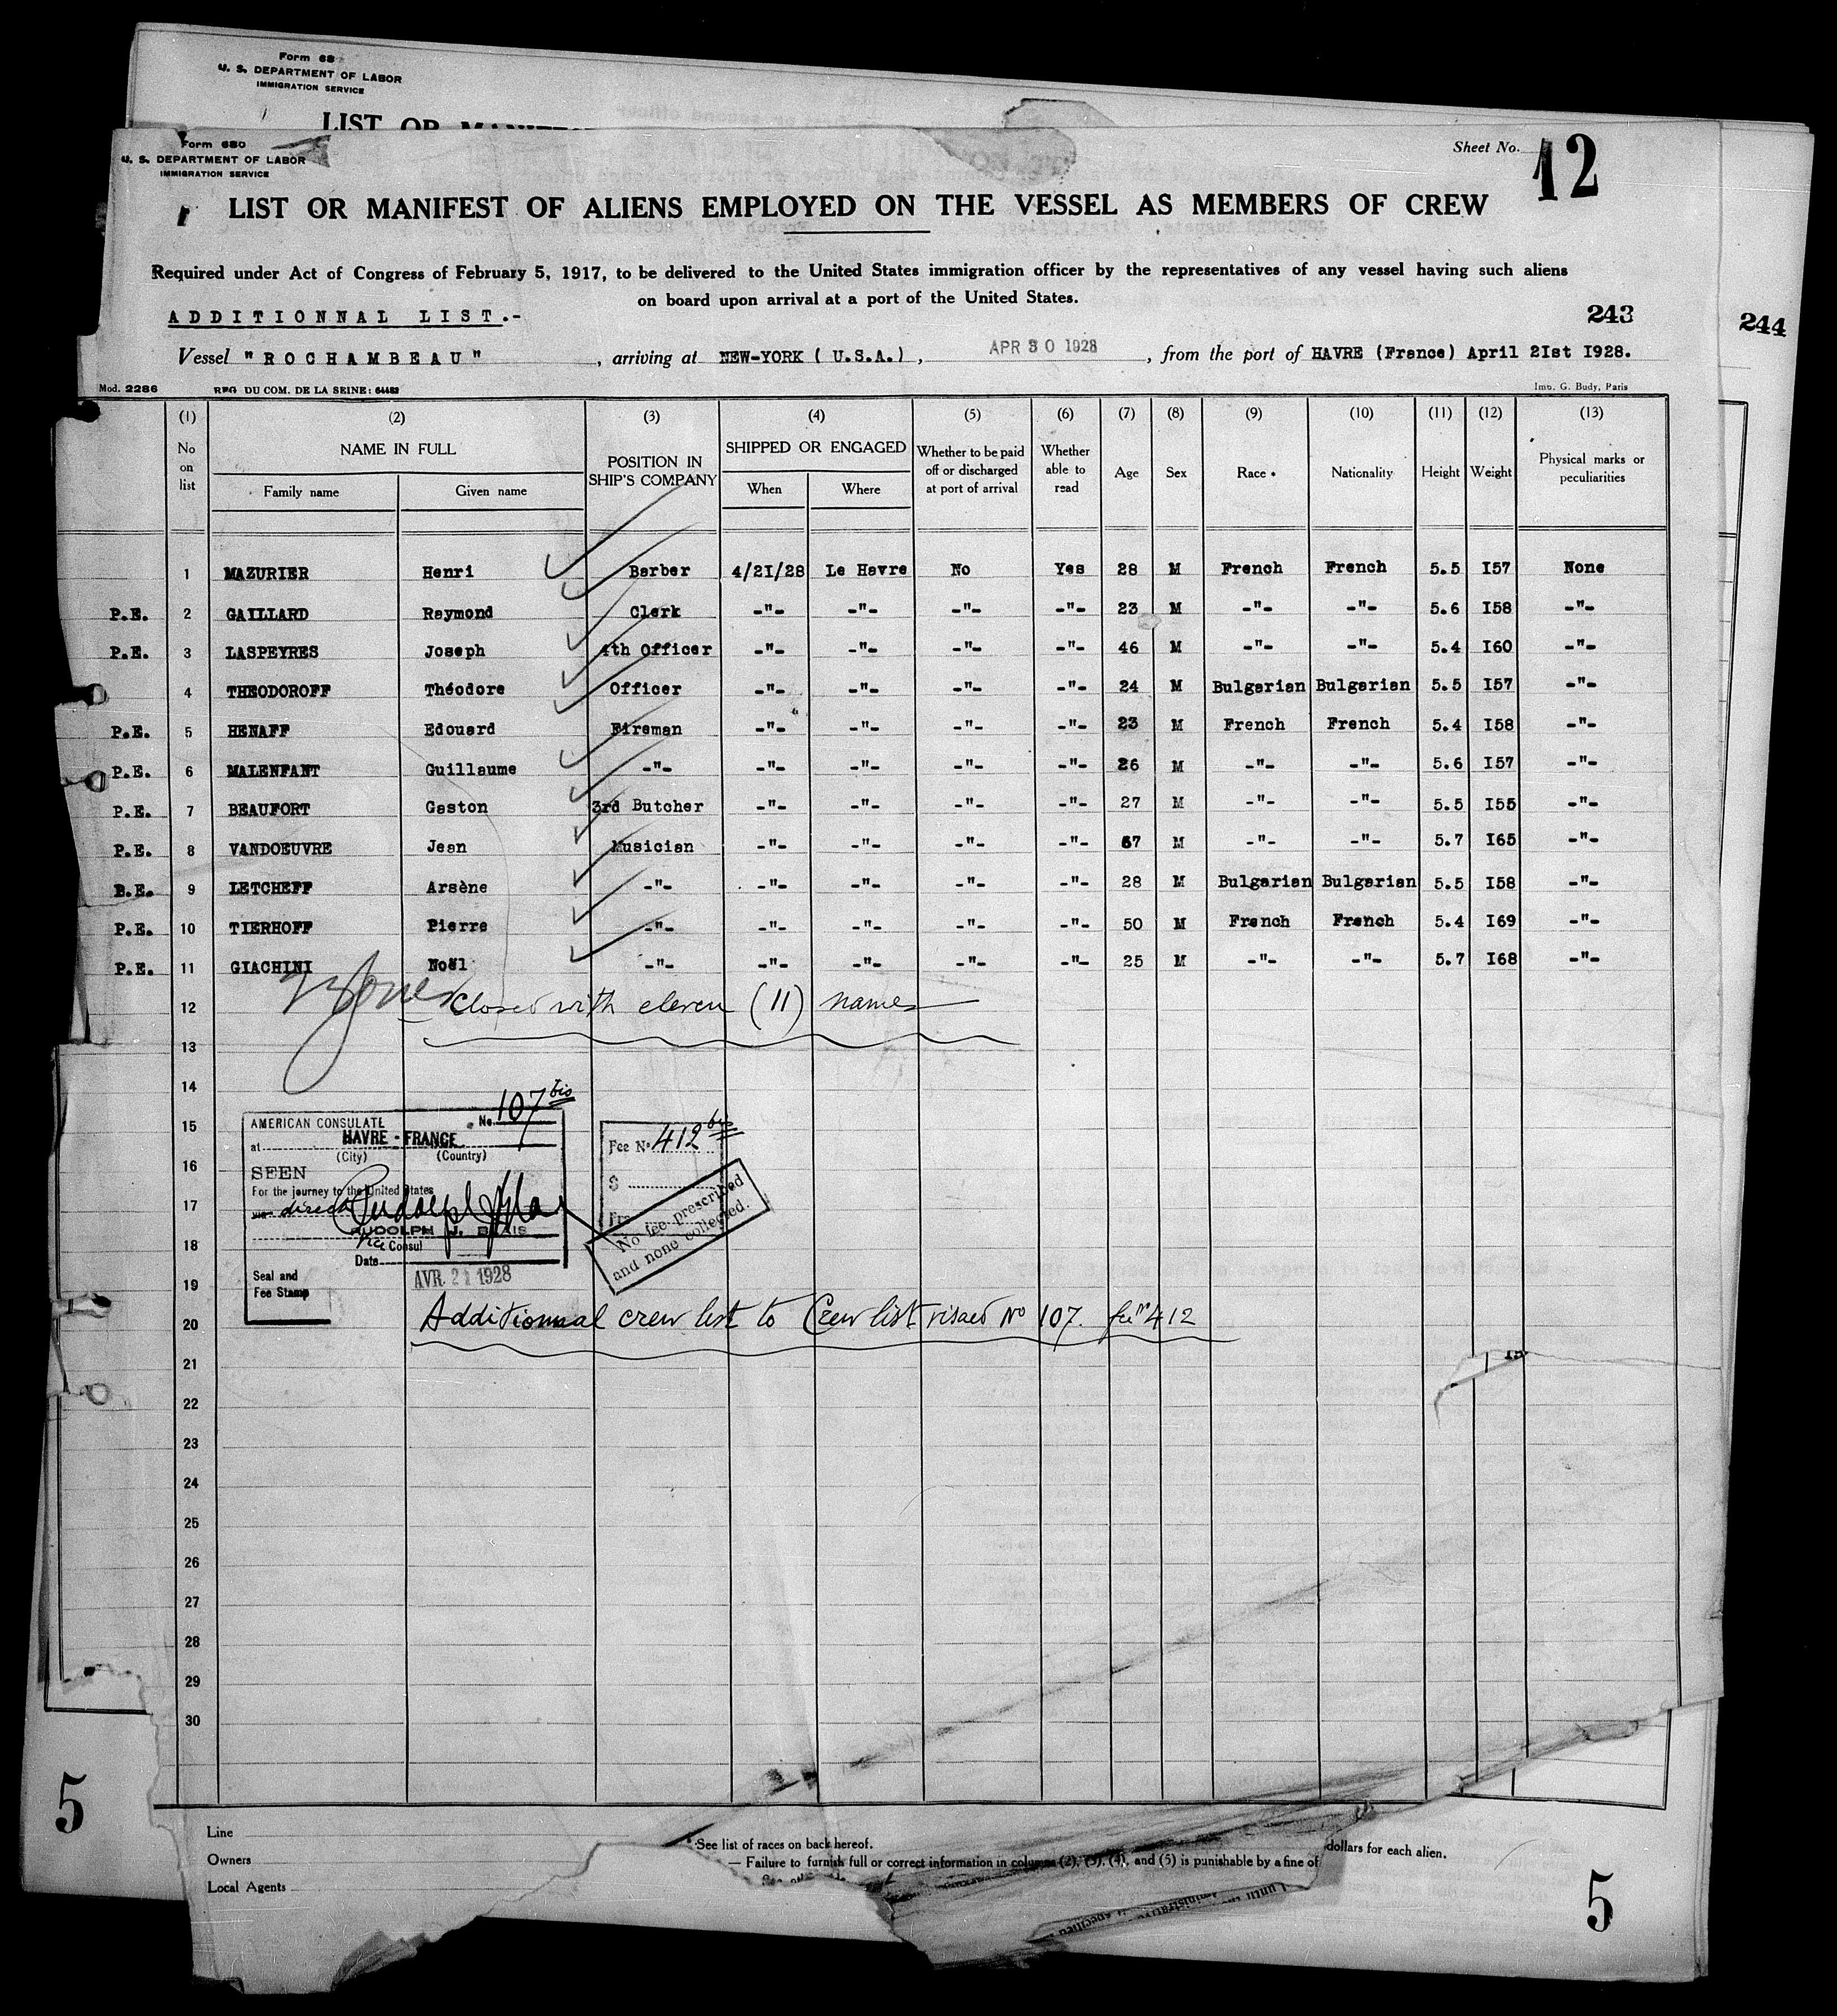 Form 68
U. S. DEPARTMENT OF LABOR
IMMIGRATION SERVICE
LIST OR
Form 680
U. S. DEPARTMENT OF LABOR
IMMIGRATION SERVICE
Sheet No. 12
LIST OR MANIFEST OF ALIENS EMPLOYED ON THE VESSEL AS MEMBERS OF CREW
Required under Act of Congress of February 5, 1917, to be delivered to the United States immigration officer by the representatives of any vessel having such aliens
on board upon arrival at a port of the United States.
ADDITIONNAL LIST.-
243
244
Vessel "ROCHAMBEAU", arriving at NEW-YORK (U.S.A.), APR 30 1928, from the port of HAVRE (France) April 2Ist I928.
Mod. 2286 REG DU COM. DE LA SEINE: 64482 Imp. G. Budy, Paris
(1) (2) (3) (4) (5) (6) (7) (8) (9) (10) (11) (12) (13)
No on list NAME IN FULL Family name Given name POSITION IN SHIP'S COMPANY SHIPPED OR ENGAGED When Where Whether to be paid off or discharged at port of arrival Whether able to read Age Sex Race * Nationality Height Weight Physical marks or peculiarities
1 MAZURIER Henri Barber 4/2I/28 Le Havre No Yes 28 M French French 5.5 I57 None
P.E. 2 GAILLARD Raymond Clerk -"- -"- -"- -"- 23 M -"- -"- 5.6 I58 -"-
P.E. 3 LASPEYRES Joseph 4th Officer -"- -"- -"- -"- 46 M -"- -"- 5.4 I60 -"-
4 THEODOROFF Théodore Officer -"- -"- -"- -"- 24 M Bulgarian Bulgarian 5.5 I57 -"-
P.E. 5 HENAFF Edouard Fireman -"- -"- -"- -"- 23 M French French 5.4 I58 -"-
P.E. 6 MALENFANT Guillaume -"- -"- -"- -"- -"- 26 M -"- -"- 5.6 I57 -"-
P.E. 7 BEAUFORT Gaston 3rd Butcher -"- -"- -"- -"- 27 M -"- -"- 5.5 I55 -"-
P.E. 8 VANDOEUVRE Jean Musician -"- -"- -"- -"- 67 M -"- -"- 5.7 I65 -"-
B.E. 9 LETCHEFF Arsène -"- -"- -"- -"- -"- 28 M Bulgarian Bulgarian 5.5 I58 -"-
P.E. 10 TIERHOFF Pierre -"- -"- -"- -"- -"- 50 M French French 5.4 I69 -"-
P.E. 11 GIACHINI Noël -"- -"- -"- -"- -"- 25 M -"- -"- 5.7 I68 -"-
12 Closed with eleven (11) names
13
14
15
16
17
18
19
20
21
22
23
24
25
26
27
28
29
30
AMERICAN CONSULATE No. 107 bis
at HAVRE - FRANCE
(City) (Country)
SEEN
For the journey to the United States
via direct
RUDOLPH J. BLAIS
Vice Consul
Date AVR 21 1928
Seal and
Fee Stamp
Fee No 412 bis
$
Frs
No fee prescribed
and none collected.
Additionnal crew list to Crew list visaed No 107. fee no 412
5
Line
Owners
Local Agents
* See list of races on back hereof.
— Failure to furnish full or correct information in columns (2), (3), (4), and (5) is punishable by a fine of dollars for each alien.
5